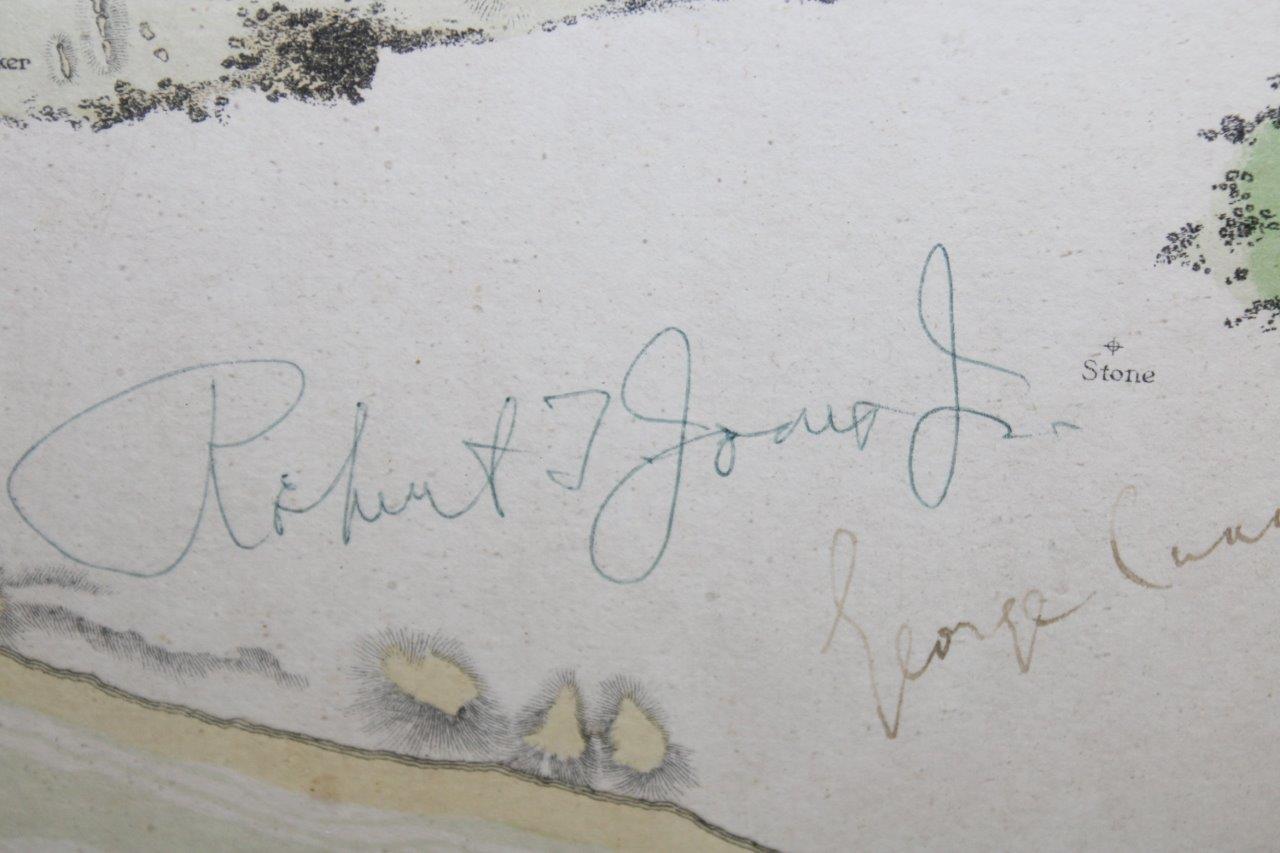 Stone
Robert T Jones Jr.
George